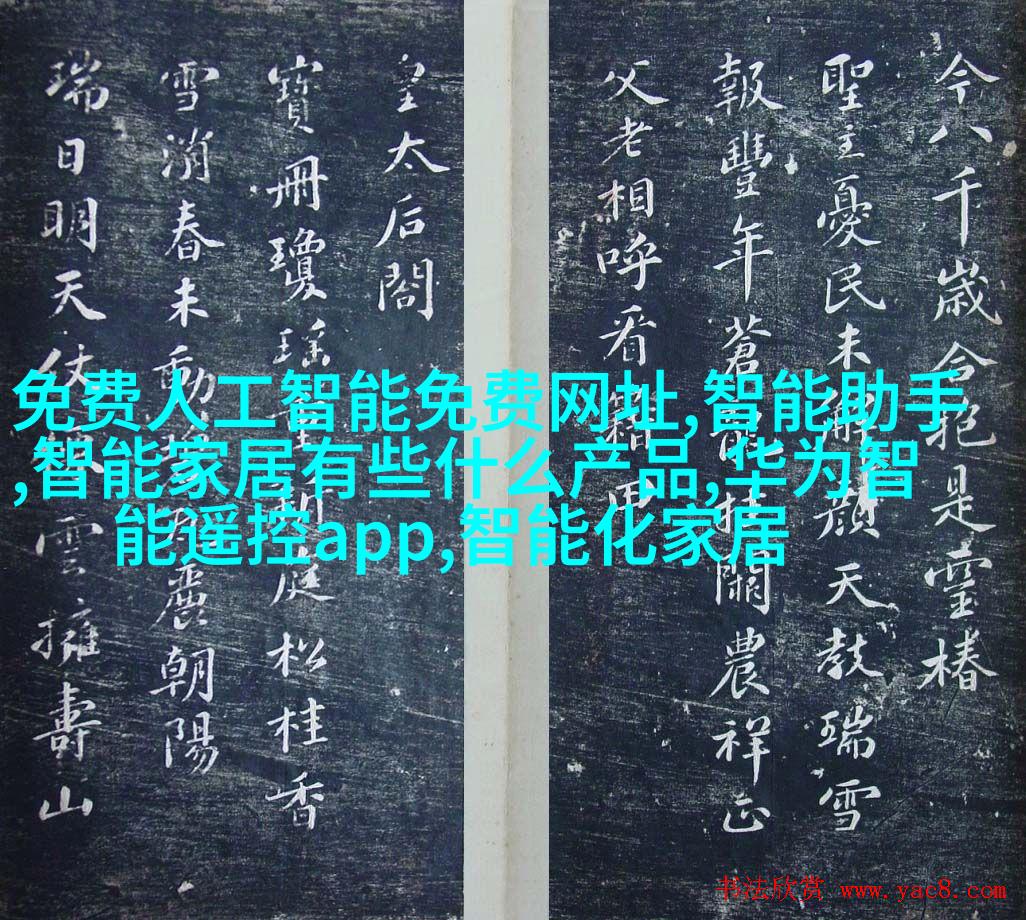 今八千歳合抱是靈椿
聖主憂民未解顔天教瑞雪
報豐年蒼龍挂闕農祥正
父老相呼看藉田
皇太后閤
寶冊瓊瑤重新庭松桂香
雪消春未動麗朝陽
瑞日明天仗雲擁壽山
免费人工智能免费网址,智能助手
,智能家居有些什么产品,华为智
能遥控app,智能化家居
书法欣赏 www.yac8.com